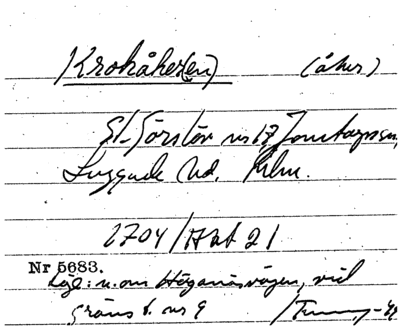 Krokåker(en) (åker)
St. Görslöv nr 17,
Luggude hd. Mlm.
2704/Hbt 21
Nr 5683.
Läge: n. om Höganäsvägen, vid
gräns t. nr 9